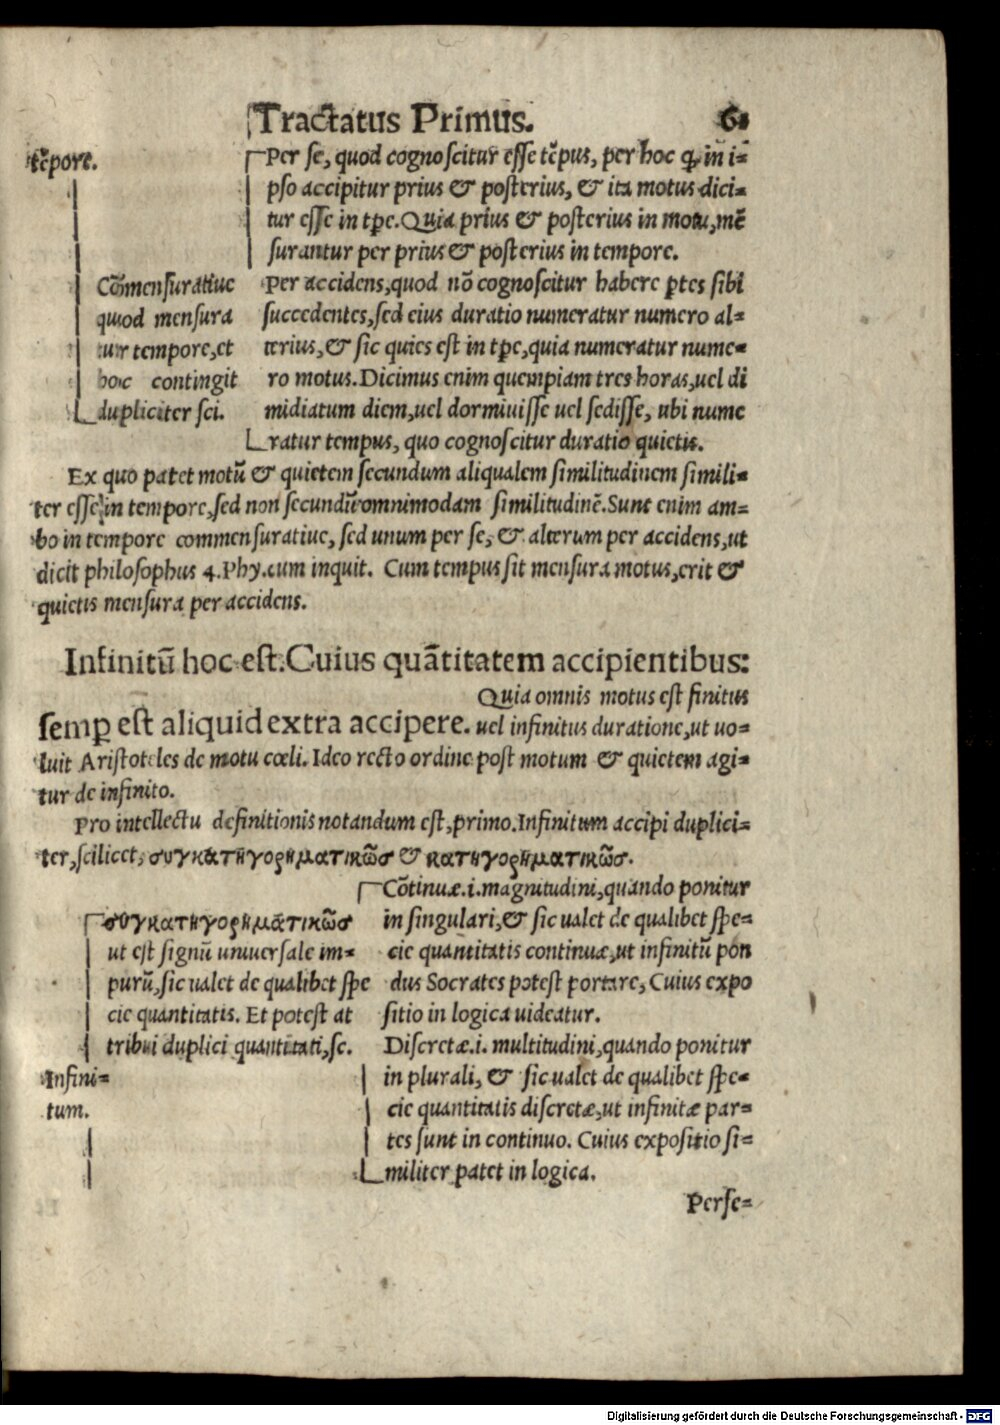 Tractatus Primus. 61
tẽpore.
Per se, quod cognoscitur esse tẽpus, per hoc ꝙ in i=
pso accipitur prius & posterius, & ita motus dici=
tur esse in tp̃e. Quia prius & posterius in motu, mẽ
surantur per prius & posterius in tempore.
Cõmensuratiue
quod mensura
tur tempore, et
hoc contingit
dupliciter sci.
Per accidens, quod nõ cognoscitur habere ꝑtes sibi
succedentes, sed eius duratio numeratur numero al=
terius, & sic quies est in tp̃e, quia numeratur nume=
ro motus. Dicimus enim quempiam tres horas, uel di
midiatum diem, uel dormiuisse uel sedisse, ubi nume
ratur tempus, quo cognoscitur duratio quietis.
Ex quo patet motũ & quietem secundum aliqualem similitudinem simili=
ter esse in tempore, sed non secundũ omnimodam similitudinẽ. Sunt enim am=
bo in tempore commensuratiue, sed unum per se, & alterum per accidens, ut
dicit philosophus 4. Phy. cum inquit. Cum tempus sit mensura motus, erit &
quietis mensura per accidens.
Infinitũ hoc est. Cuius quãtitatem accipientibus:
semꝑ est aliquid extra accipere.
Quia omnis motus est finitus
uel infinitus duratione, ut uo=
luit Aristoteles de motu cœli. Ideo recto ordine post motum & quietem agi=
tur de infinito.
Pro intellectu definitionis notandum est, primo. Infinitum accipi duplici=
ter, scilicet, συγκατηγορηματικῶσ & κατηγορηματικῶσ.
Infini=
tum.
συγκατηγορηματικῶσ
ut est signũ uniuersale im=
purũ, sic ualet de qualibet spe
cie quantitatis. Et potest at
tribui duplici quantitati, sc.
Cõtinuæ .i. magnitudini, quando ponitur
in singulari, & sic ualet de qualibet spe=
cie quantitatis continuæ, ut infinitũ pon
dus Socrates potest portare, Cuius expo
sitio in logica uideatur.
Discretæ .i. multitudini, quando ponitur
in plurali, & sic ualet de qualibet spe=
cie quantitatis discretæ, ut infinitæ par=
tes sunt in continuo. Cuius expositio si=
militer patet in logica.
Perse=
Digitalisierung gefördert durch die Deutsche Forschungsgemeinschaft - DFG